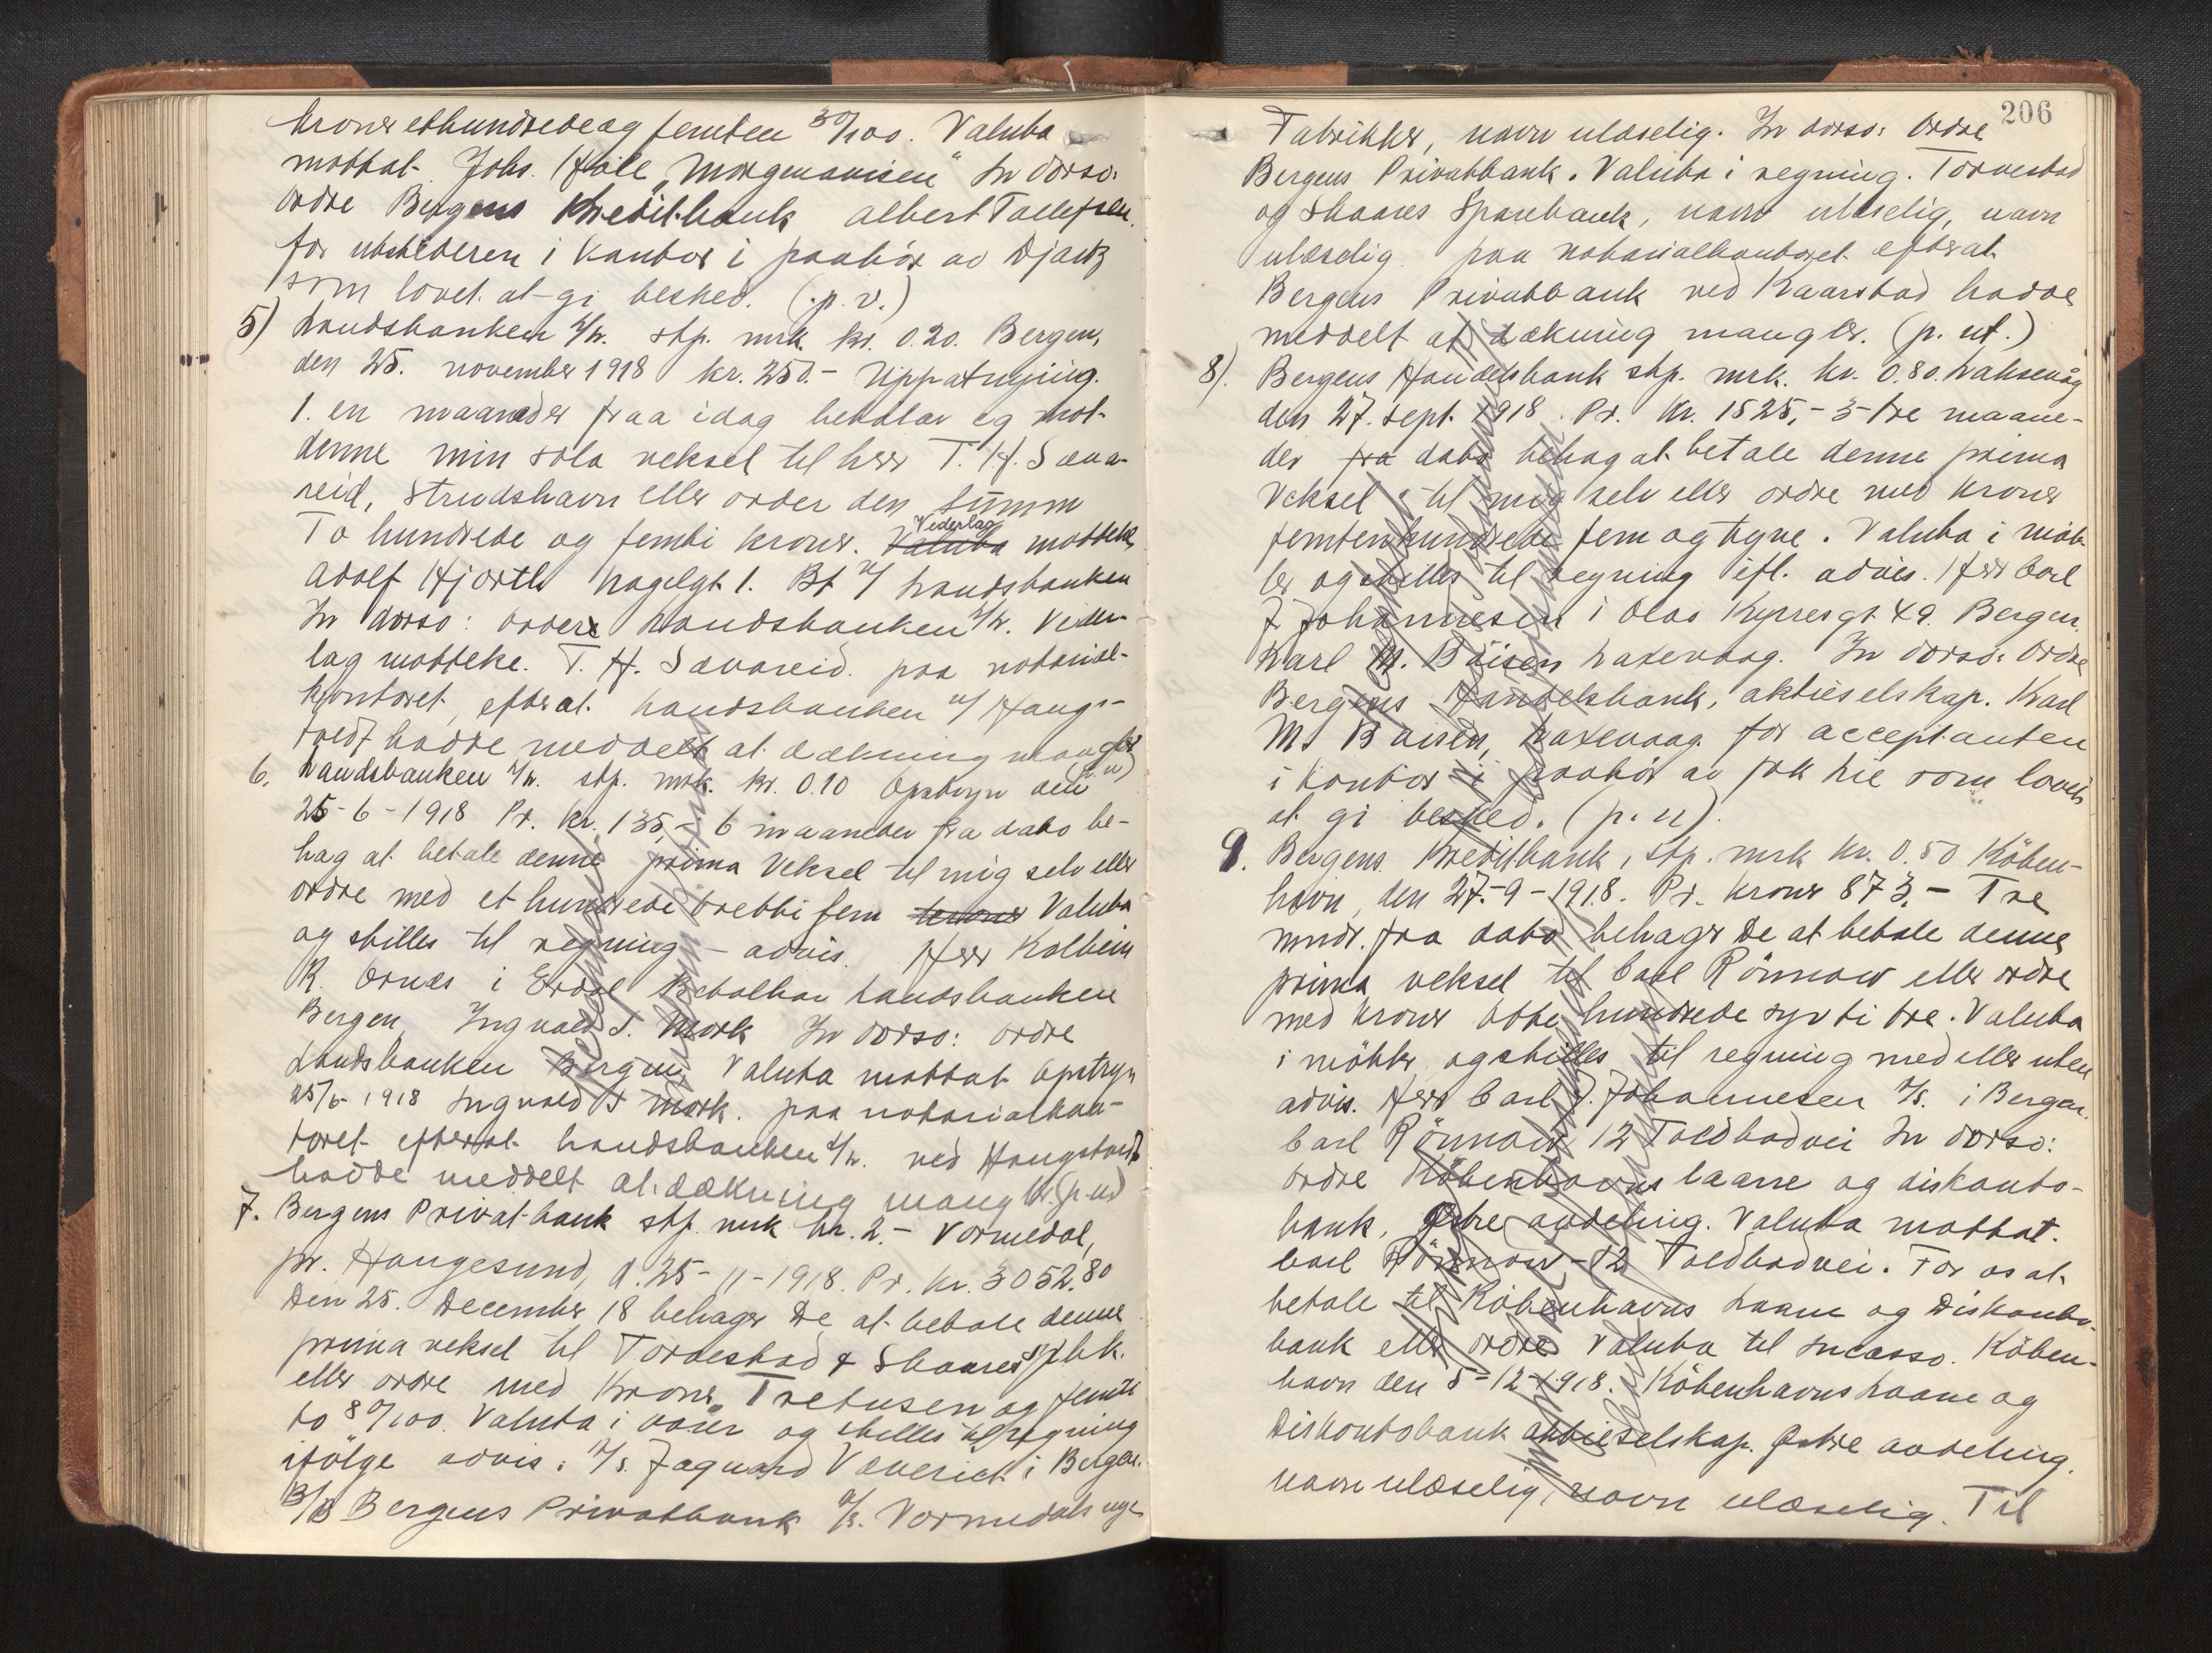 kroner ethundredeog femten 30/100. Valuta
mottat. Johs. Hille „Morgenavisen" In dorso:
Ordre Bergens Kreditbank Albert Tollefsen.
for utstederen i kontor i paahör av
som lovet at gi besked. (p. v.)
5) Landsbanken A/k. stp. mrk. kr. 0.20. Bergen,
den 25. november 1918 kr. 250.-
1. en maaneder fraa idag betalar eg mot
denne min sola veksel til herr T. H. Sæva-
reid, Strudshavn eller order den summ
To hundrede og femti kroner. Valuta Vederlag motteke
Adolf Hjorth hagelgt 1. Bt A/ Landsbanken
In dorso: order Landsbanken A/k. Veder-
lag motteke. T. H. Sævareid. paa notarial-
kontoret, efterat Landsbanken v/ Haugs-
tvedt hadde meddelt at dækning mangler
(p. u)
6. Landsbanken A/k. stp. mrk. kr. 0.10 Opstryn den
25-6-1918 Pr. kr. 135,- 6 maaneder fra dato be-
hag at betale denne prima Veksel til mig selv eller
ordre med et hundrede tretti fem kroner Valuta
og stilles til regning - advis. Herr Kolbein
R. Ornes i Erdal Betalbar Landsbanken
Bergen, Ingvald S. Mork In dorso: ordre
Landsbanken Bergen Valuta mottat Opstryn
25/6 1918 Ingvald S Mork. paa notarialkon-
toret efterat Landsbanken A/k. ved Haugstvedt
hadde meddelt at dækning mangler. (p. u)
7. Bergens Privatbank stp. mrk kr. 2.- Vormedal,
pr. Haugesund, d. 25-11-1918. Pr. kr. 3052.80
Den 25. December 18 behager De at betale denne
prima veksel til Torvestad & Skaares spbk.
eller ordre med Kroner Tretusen og femti
to 80/100. Valuta i varer og stilles til regning
ifölge advis. A/s. Jaquard Væveriet i Bergen.
B/B Bergens Privatbank A/s. Vormedals
206
Fabrikker, navn ulæselig. In dorso: Ordre
Bergens Privatbank. Valuta i regning. Torvestad
og Skaares Sparebank, navn ulæselig, navn
ulæselig. paa notarialkontoret efterat
Bergens Privatbank ved Kaarstad hadde
meddelt at dækning mangler. (p. ut.)
8). Bergens Handelsbank stp. mrk. kr. 0.80. Laksevåg
den 27. sept. 1918. Pr. Kr. 1525,- 3 tre maane-
der fra dato behag at betale denne prima
Veksel til mig selv eller ordre med kroner
femtenhundrede fem og tyve. Valuta i möb-
ler og stilles til regning ifl. advis. Herr Carl
J Johannesen i Olav Kyrresgt 49. Bergen.
Karl M. Böisen Laxevaag. In dorso: Ordre
Bergens Handelsbank, aktieselskap. Karl
M. Böisen, Laxevaag. for acceptanten
i kontor i paahör av som lovet
at gi besked. (p. u).
9. Bergens Kreditbank, stp. mrk kr. 0.50 Köben-
havn, den 27.-9-1918. Pr. kroner 873.- Tre
mndr. fra dato behager De at betale denne
prima veksel til Carl Rönnow eller ordre
med kroner Otte hundrede syv ti tre. Valuta
i möbler og stilles til regning med eller uten
advis. Herr Carl J. Johannesen A/s. i Bergen.
Carl Rönnow 12 Toldbodvei In dorso:
Ordre Köbenhavns laane og diskonto-
bank, Östre avdeling. Valuta mottat.
Carl Rönnow - 12 Toldbodvei. For os at
betale til Köbenhavns Laane og Diskonto-
bank eller ordre Valuta til Incasso. Köben-
havn den 5-12-1918. Köbenhavns Laane og
Diskontobank aktieselskap. Östre avdeling.
navn ulæselig, navn ulæselig. Til